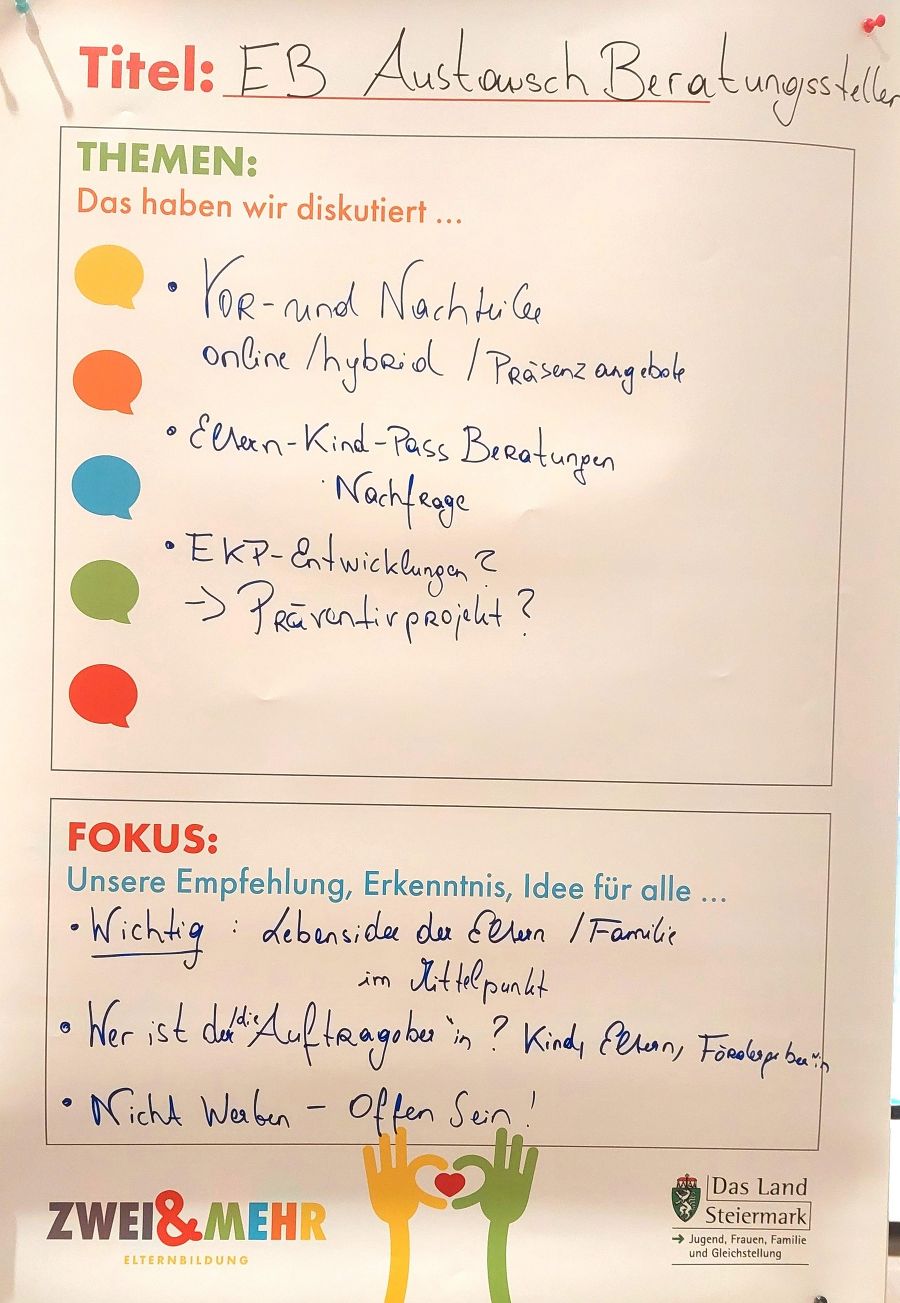 Titel: EB Austausch Beratungsstellen
THEMEN:
Das haben wir diskutiert ...
• Vor- und Nachteile
online / hybrid / Präsenzangebote
• Eltern-Kind-Pass Beratungen
Nachfrage
• EKP-Entwicklungen?
-> Präventivprojekt?
FOKUS:
Unsere Empfehlung, Erkenntnis, Idee für alle ...
• Wichtig : Lebensidee der Eltern / Familie
im Mittelpunkt
• Wer ist der/die Auftragober*in? Kind, Eltern, Fördergeber*in
• Nicht Werben - Offen Sein!
ZWEI&MEHR
ELTERNBILDUNG
Das Land
Steiermark
→ Jugend, Frauen, Familie
und Gleichstellung